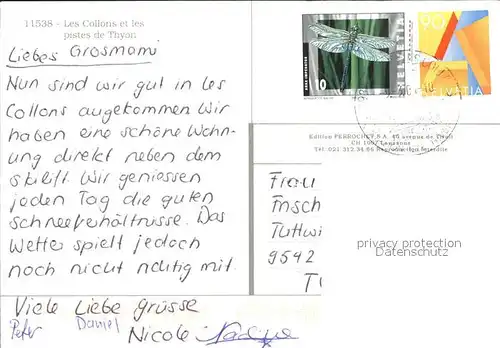 11538 - Les Collons et les
pistes de Thyon
Liebes Grosmami
Nun sind wir gut in les
Collons angekommen wir
haben eine schöne Wohn-
ung direkt neben dem
skilift. Wir geniessen
jeden Tag die guten
Schneeverhältnisse. Das
Wetter spielt jedoch
noch nicht richtig mit.
Viele Liebe grüsse
Peter Daniel Nicole
10
HELVETIA
90
HELVETIA
Edition PERROCHET S.A. 40 avenue de Tivoli
CH 1007 Lausanne
Tél. 021 312 34 86 Reproduction interdite
Frau
Frisch
Tuttwi
9542
privacy protection
Datenschutz